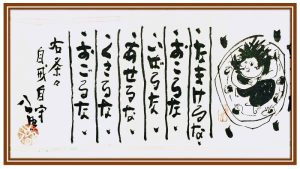 なまけるな
おこるな
いばるな
あせるな
くさるな
おごるな
右条々
自戒自守